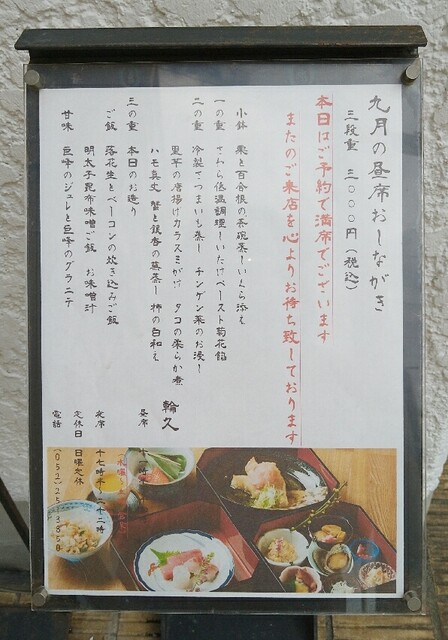 九月の昼席おしながき
三段重 三〇〇〇円(税込)
本日はご予約で満席でございます
またのご来店を心よりお待ち致しております
小鉢 栗と百合根の茶碗蒸し いくら添え
一の重 さわら低温調理しいたけペースト菊花餡
冷製さつまいも蒸し チンゲン菜のお浸し
二の重 里芋の唐揚げカラスミがけ タコの柔らか煮
ハモ真丈 蟹と銀杏の蒸蒸し 柿の白和え
三の重 本日のお造り
ご飯 落花生とベーコンの炊き込みご飯
明太子昆布味噌ご飯 お味噌汁
甘味 巨峰のジュレと巨峰のグラニテ
輪久
昼席
夜席 十七時半〜二十二時
定休日 日曜定休
電話 (052)